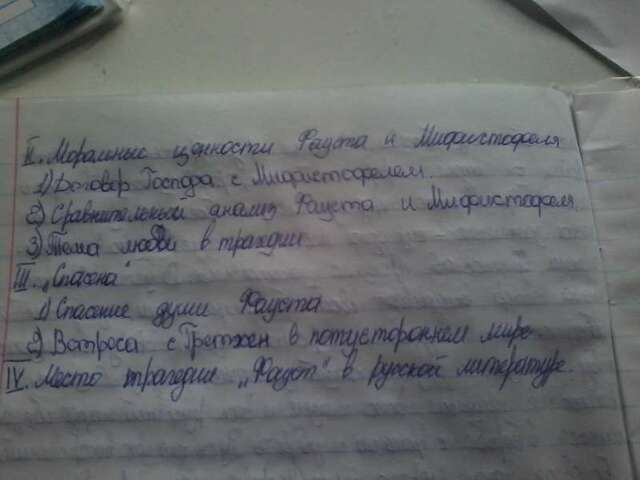 II. Моральные ценности Фауста и Мифистофеля
1) Договор Господа с Мифистофелем.
2) Сравнительный анализ Фауста и Мифистофеля
3) Тема любви в трагедии
III. „Спасена"
1) Спасение души Фауста
2) Встреса с Гретхен в потустороннем мире.
IV. Место трагедии „Фауст" в русской литературе.